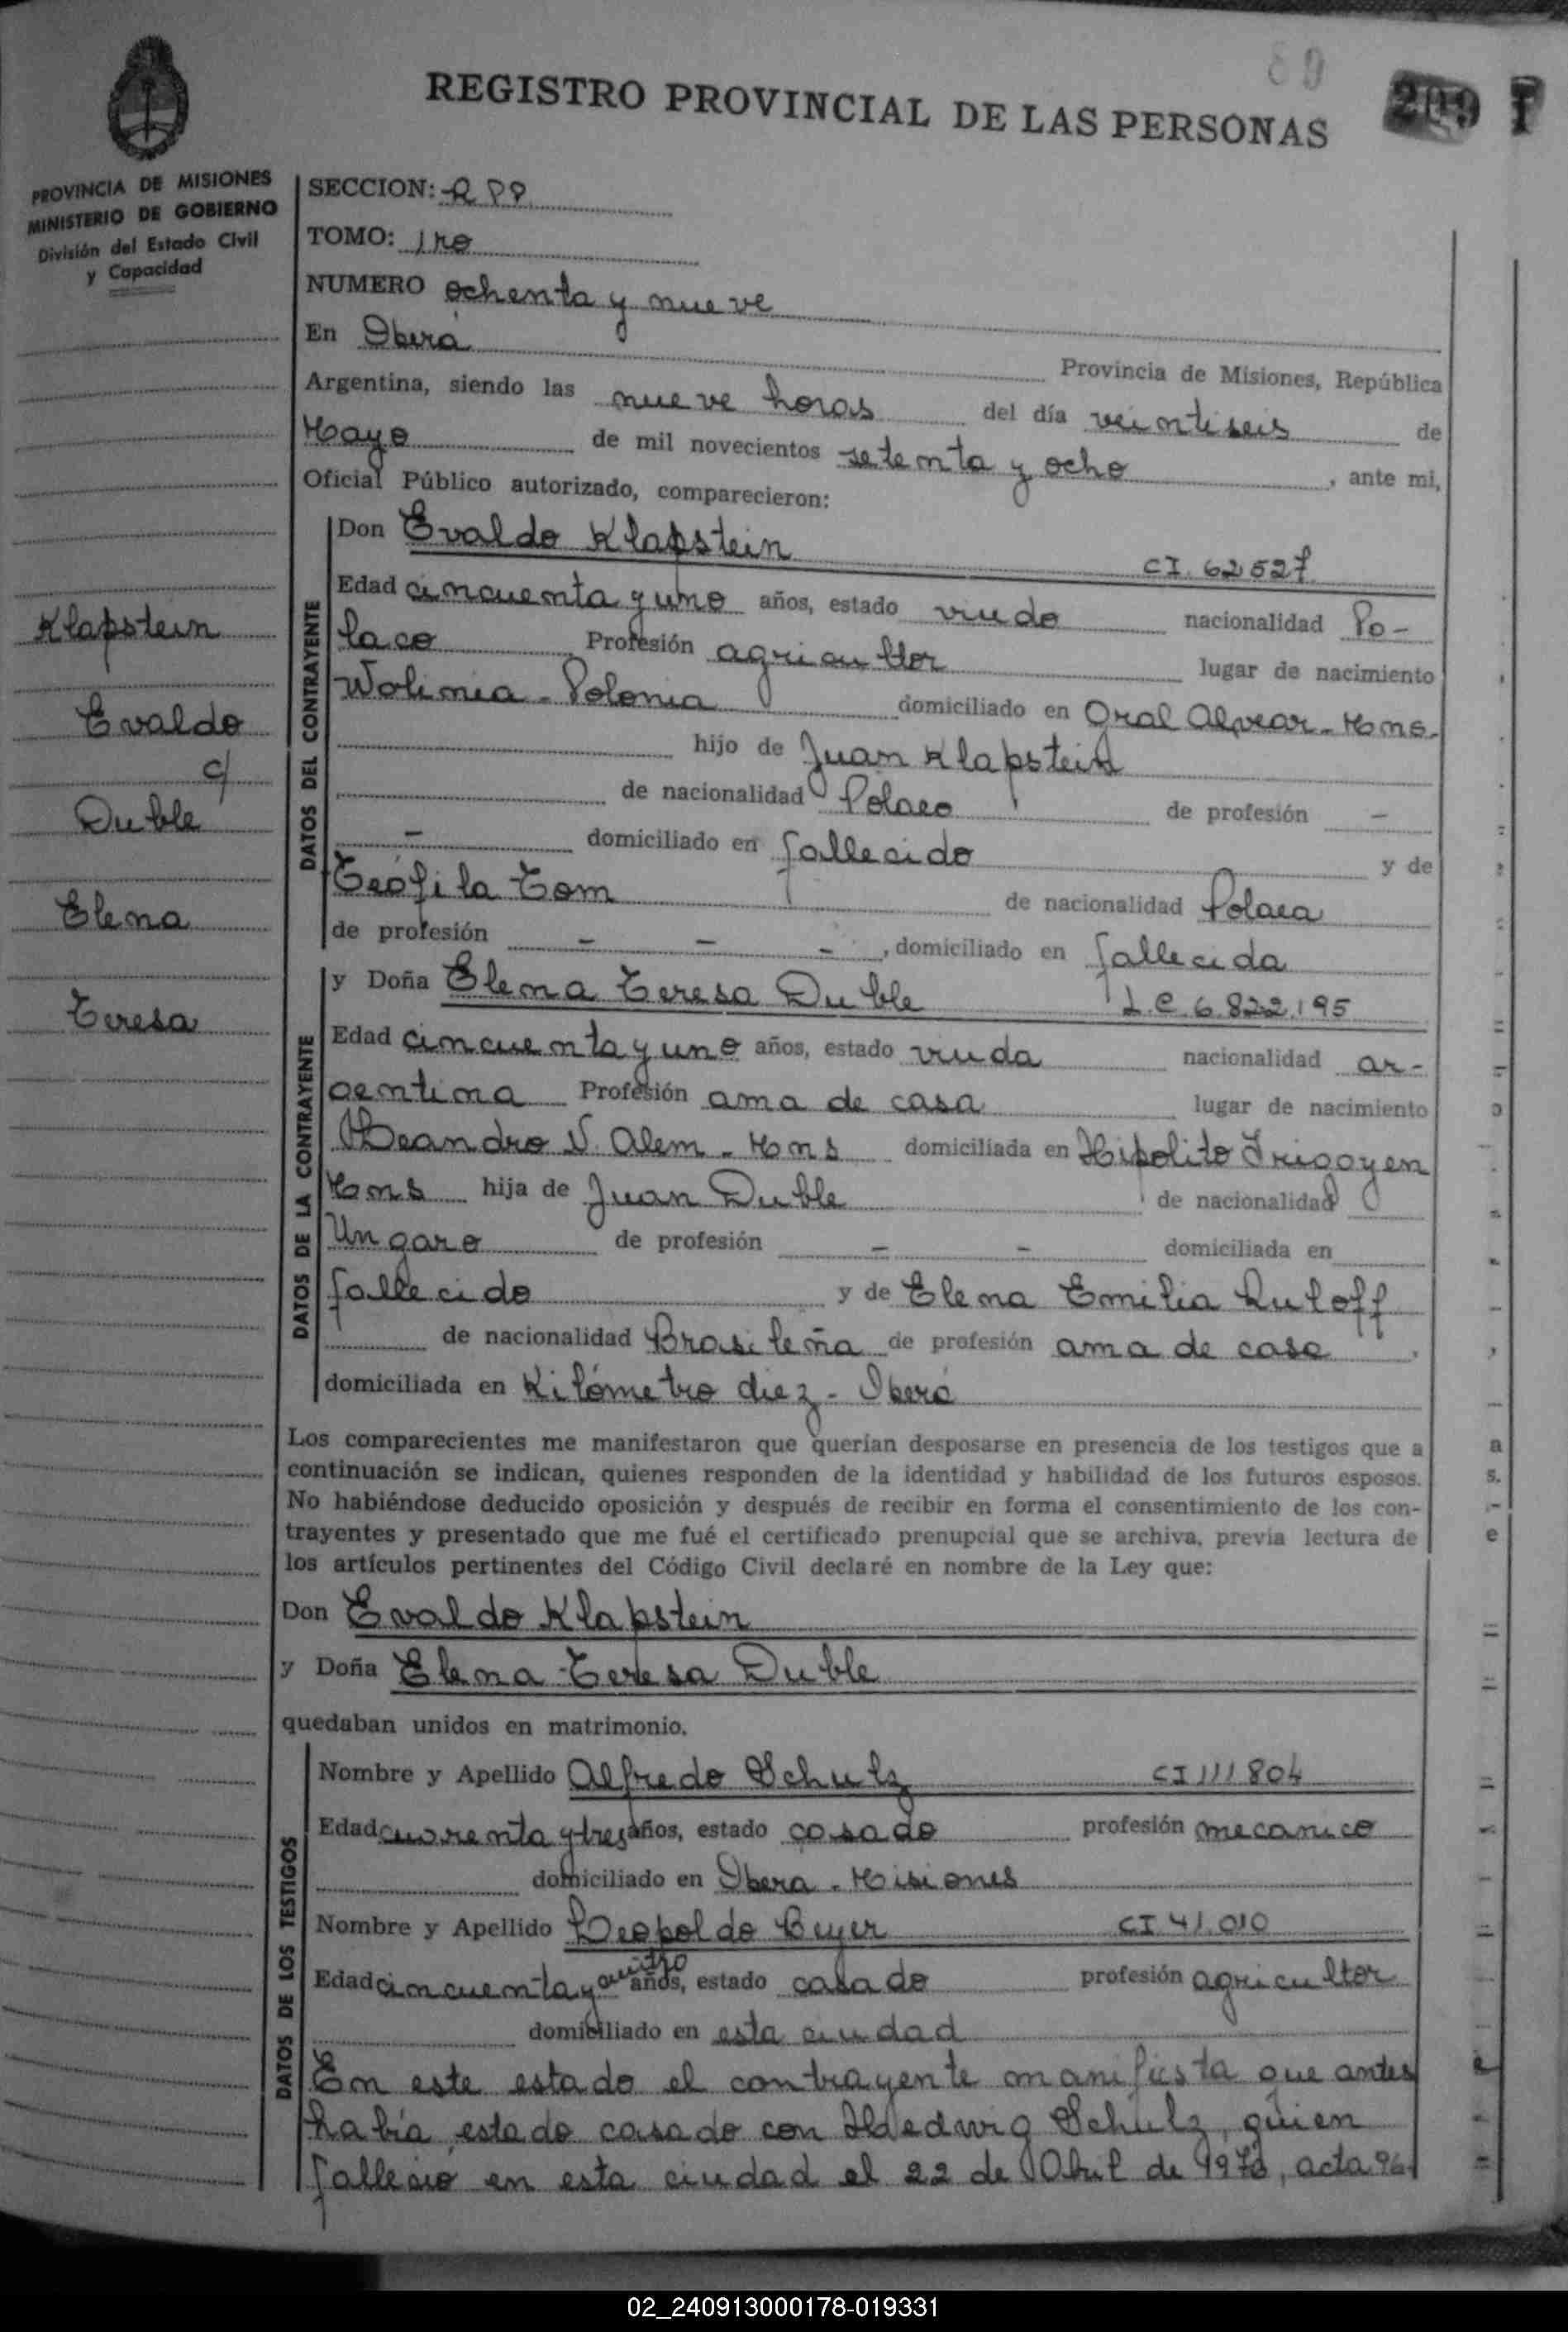 REGISTRO PROVINCIAL DE LAS PERSONAS
209
PROVINCIA DE MISIONES
MINISTERIO DE GOBIERNO
División del Estado Civil
y Capacidad
SECCION: R P P
TOMO: 1ro
NUMERO ochenta y nueve
En Oberá Provincia de Misiones, República
Argentina, siendo las nueve horas del día veintiseis de
Mayo de mil novecientos setenta y ocho, ante mi,
Oficial Público autorizado, comparecieron:
Klapstein
Evaldo
c/
Duble
Elena
Teresa
DATOS DEL CONTRAYENTE
Don Evaldo Klapstein CI. 62527
Edad cincuenta y uno años, estado viudo nacionalidad Po-
laco Profesión agricultor lugar de nacimiento
Wolinia - Polonia domiciliado en Gral Alvear - Mns.
hijo de Juan Klapstein
de nacionalidad Polaco de profesión -
- domiciliado en fallecido y de
Teófila Tom de nacionalidad Polaca
de profesión - - -, domiciliado en fallecida
DATOS DE LA CONTRAYENTE
y Doña Elena Teresa Duble L.C. 6.822.195
Edad cincuenta y uno años, estado viuda nacionalidad ar-
gentina Profesión ama de casa lugar de nacimiento
Leandro N. Alem - Mns domiciliada en Hipolito Irigoyen
Mns hija de Juan Duble de nacionalidad
Ungaro de profesión - - domiciliada en
fallecido y de Elena Emilia Ruloff
de nacionalidad Brasileña de profesión ama de casa
domiciliada en Kilómetro diez - Oberá
Los comparecientes me manifestaron que querían desposarse en presencia de los testigos que a
continuación se indican, quienes responden de la identidad y habilidad de los futuros esposos.
No habiéndose deducido oposición y después de recibir en forma el consentimiento de los con-
trayentes y presentado que me fué el certificado prenupcial que se archiva, previa lectura de
los artículos pertinentes del Código Civil declaré en nombre de la Ley que:
Don Evaldo Klapstein
y Doña Elena Teresa Duble
quedaban unidos en matrimonio.
DATOS DE LOS TESTIGOS
Nombre y Apellido Alfredo Schulz CI 111804
Edad cuarenta y tres años, estado casado profesión mecanico
domiciliado en Obera - Misiones
Nombre y Apellido Leopoldo Beyer CI 41.010
Edad cincuenta y cuatro años, estado casado profesión agricultor
domiciliado en esta ciudad
En este estado el contrayente manifiesta que antes
había estado casado con Hedwig Schulz, quien
falleció en esta ciudad el 22 de Abril de acta 96
02_240913000178-019331